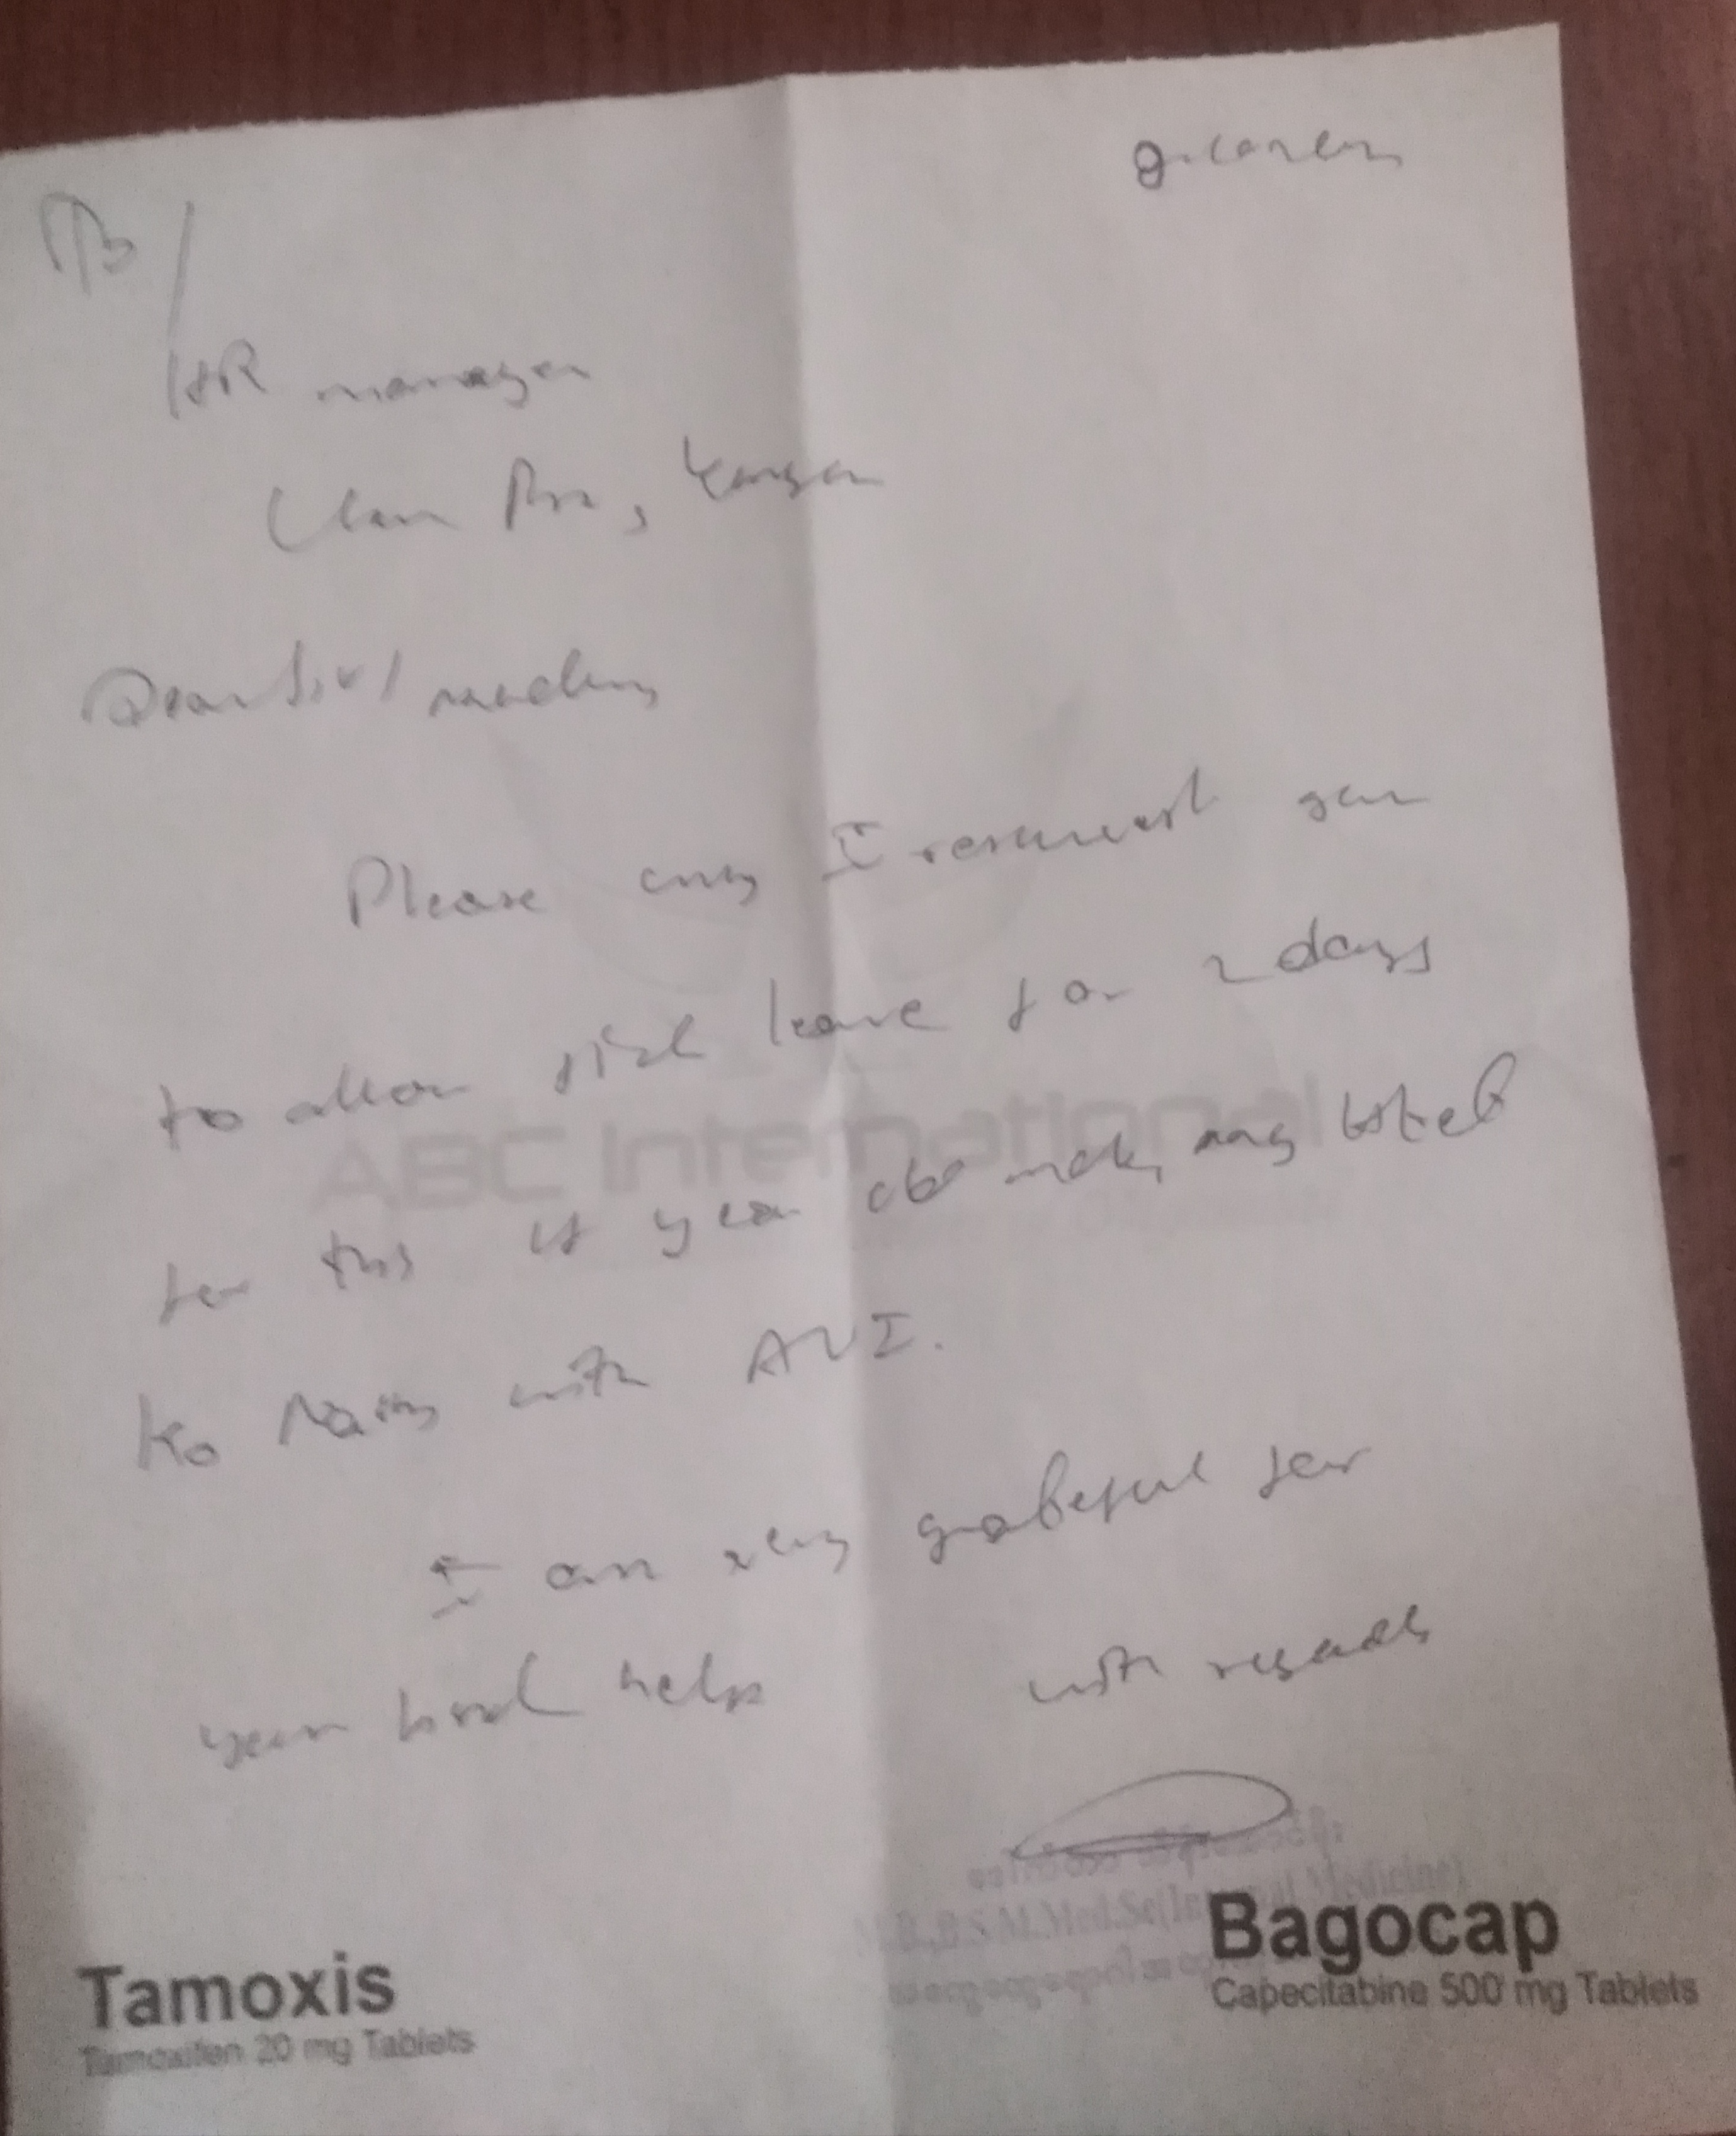 To/
HR manager
Clean Pro, Yangon
Dear Sir/ madam
Please may I request you
to allow sick leave for 2 days
for this 18 year old male, Mg Htet
Ko Naing with AVI.
I am very grateful for
your kind help
with regards
M.B.,B.S,M.Med.Sc(Internal Medicine)
ABC International
Tamoxis
Tamoxifen 20 mg Tablets
Bagocap
Capecitabine 500 mg Tablets